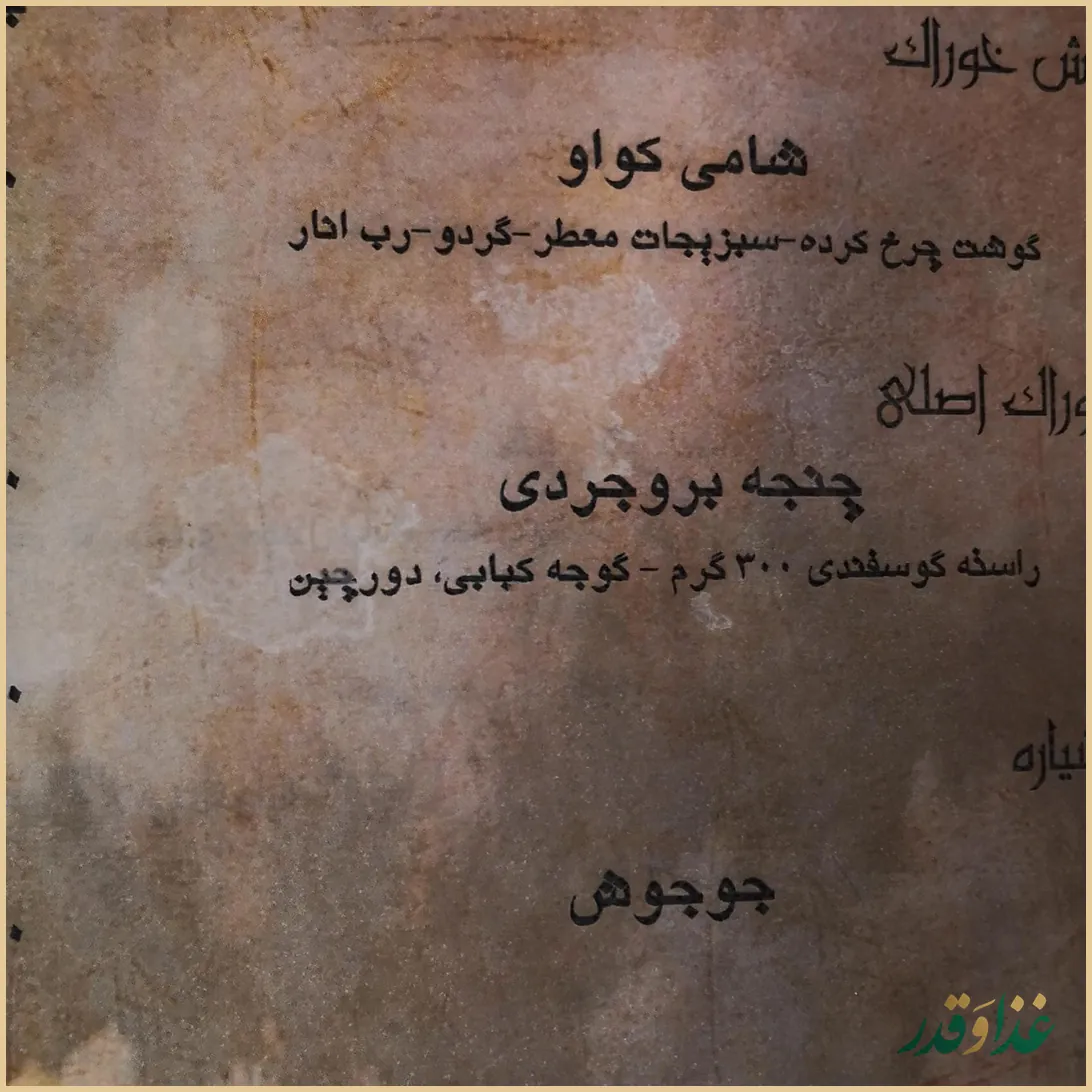 ش خوراک
شامی کواو
گوشت چرخ کرده-سبزیجات معطر-گردو-رب انار
وراک اصلی
چنجه بروجردی
راسته گوسفندی ۳۰۰ گرم - گوجه کبابی، دورچین
یاره
جوجوش
غذا وَ قدر